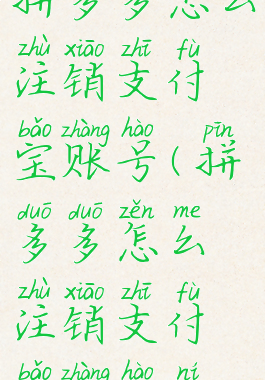 拼多多怎么
zhù xiāo zhī fù
注销支付
bǎo zhàng hào pīn
宝账号(拼
duō duō zěn me
多多怎么
zhù xiāo zhī fù
注销支付
bǎo zhàng hào ní